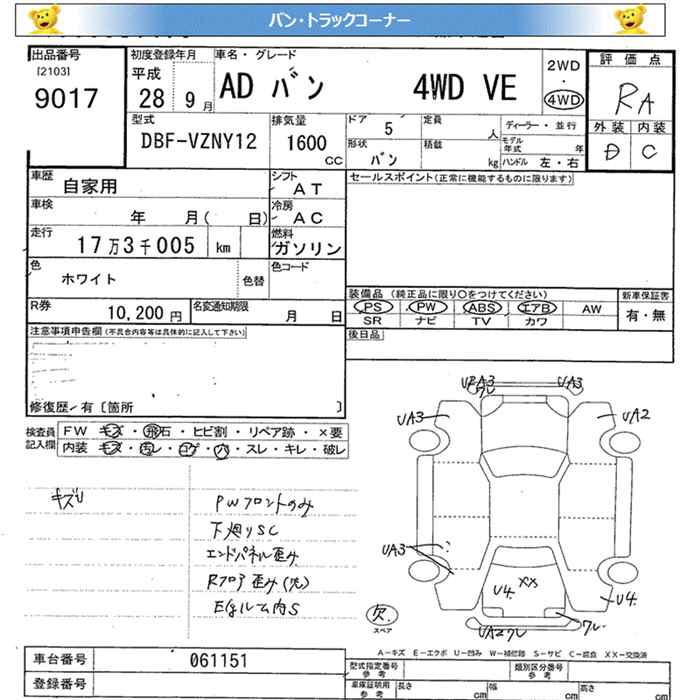 バン・トラックコーナー
出品番号
[2103]
9017
初度登録年月
平成
28 9月
車名・グレード
AD バン 4WD VE
2WD
・
4WD
評価点
RA
外装 内装
D C
型式
DBF-VZNY12
排気量
1600
CC
ドア 5
形状 バン
定員 人
積載 kg
ディーラー・並行
モデル年式 年
ハンドル 左・右
車歴 自家用
シフト AT
セールスポイント(正常に機能するものに限ります)
車検 年 月( 日)
冷房 AC
走行 17万3千005 km
燃料 ガソリン
色 ホワイト 色替
色コード
装備品 (純正品に限り○をつけてください)
新車保証書
PS PW ABS エアB AW
SR ナビ TV カワ
有・無
R券 10,200円
名変通知期限 月 日
後日品
注意事項申告欄(不具合内容等は具体的に記入して下さい)
修復歴・有〔箇所 〕
検査員記入欄
FW キズ・飛石・ヒビ割・リペア跡・×要
内装 キズ・汚レ・コゲ・穴・スレ・キレ・破レ
キズU
PWフロントのみ
下廻りSC
エンドパネル歪み
Rフロア歪み(先)
E/gルーム内S
UPA3
ワレ
UA3
UA3
UA2
UA3
U4
XX
U4
ワレ
UA2ワレ
欠
スペア
A-キズ E-エクボ U-凹み W-補修跡 S-サビ C-腐食 XX-交換済
車台番号 061151
登録番号
型式指定番号 参考
類別区分番号 参考
車庫証明用 参考
長さ cm
幅 cm
高さ cm